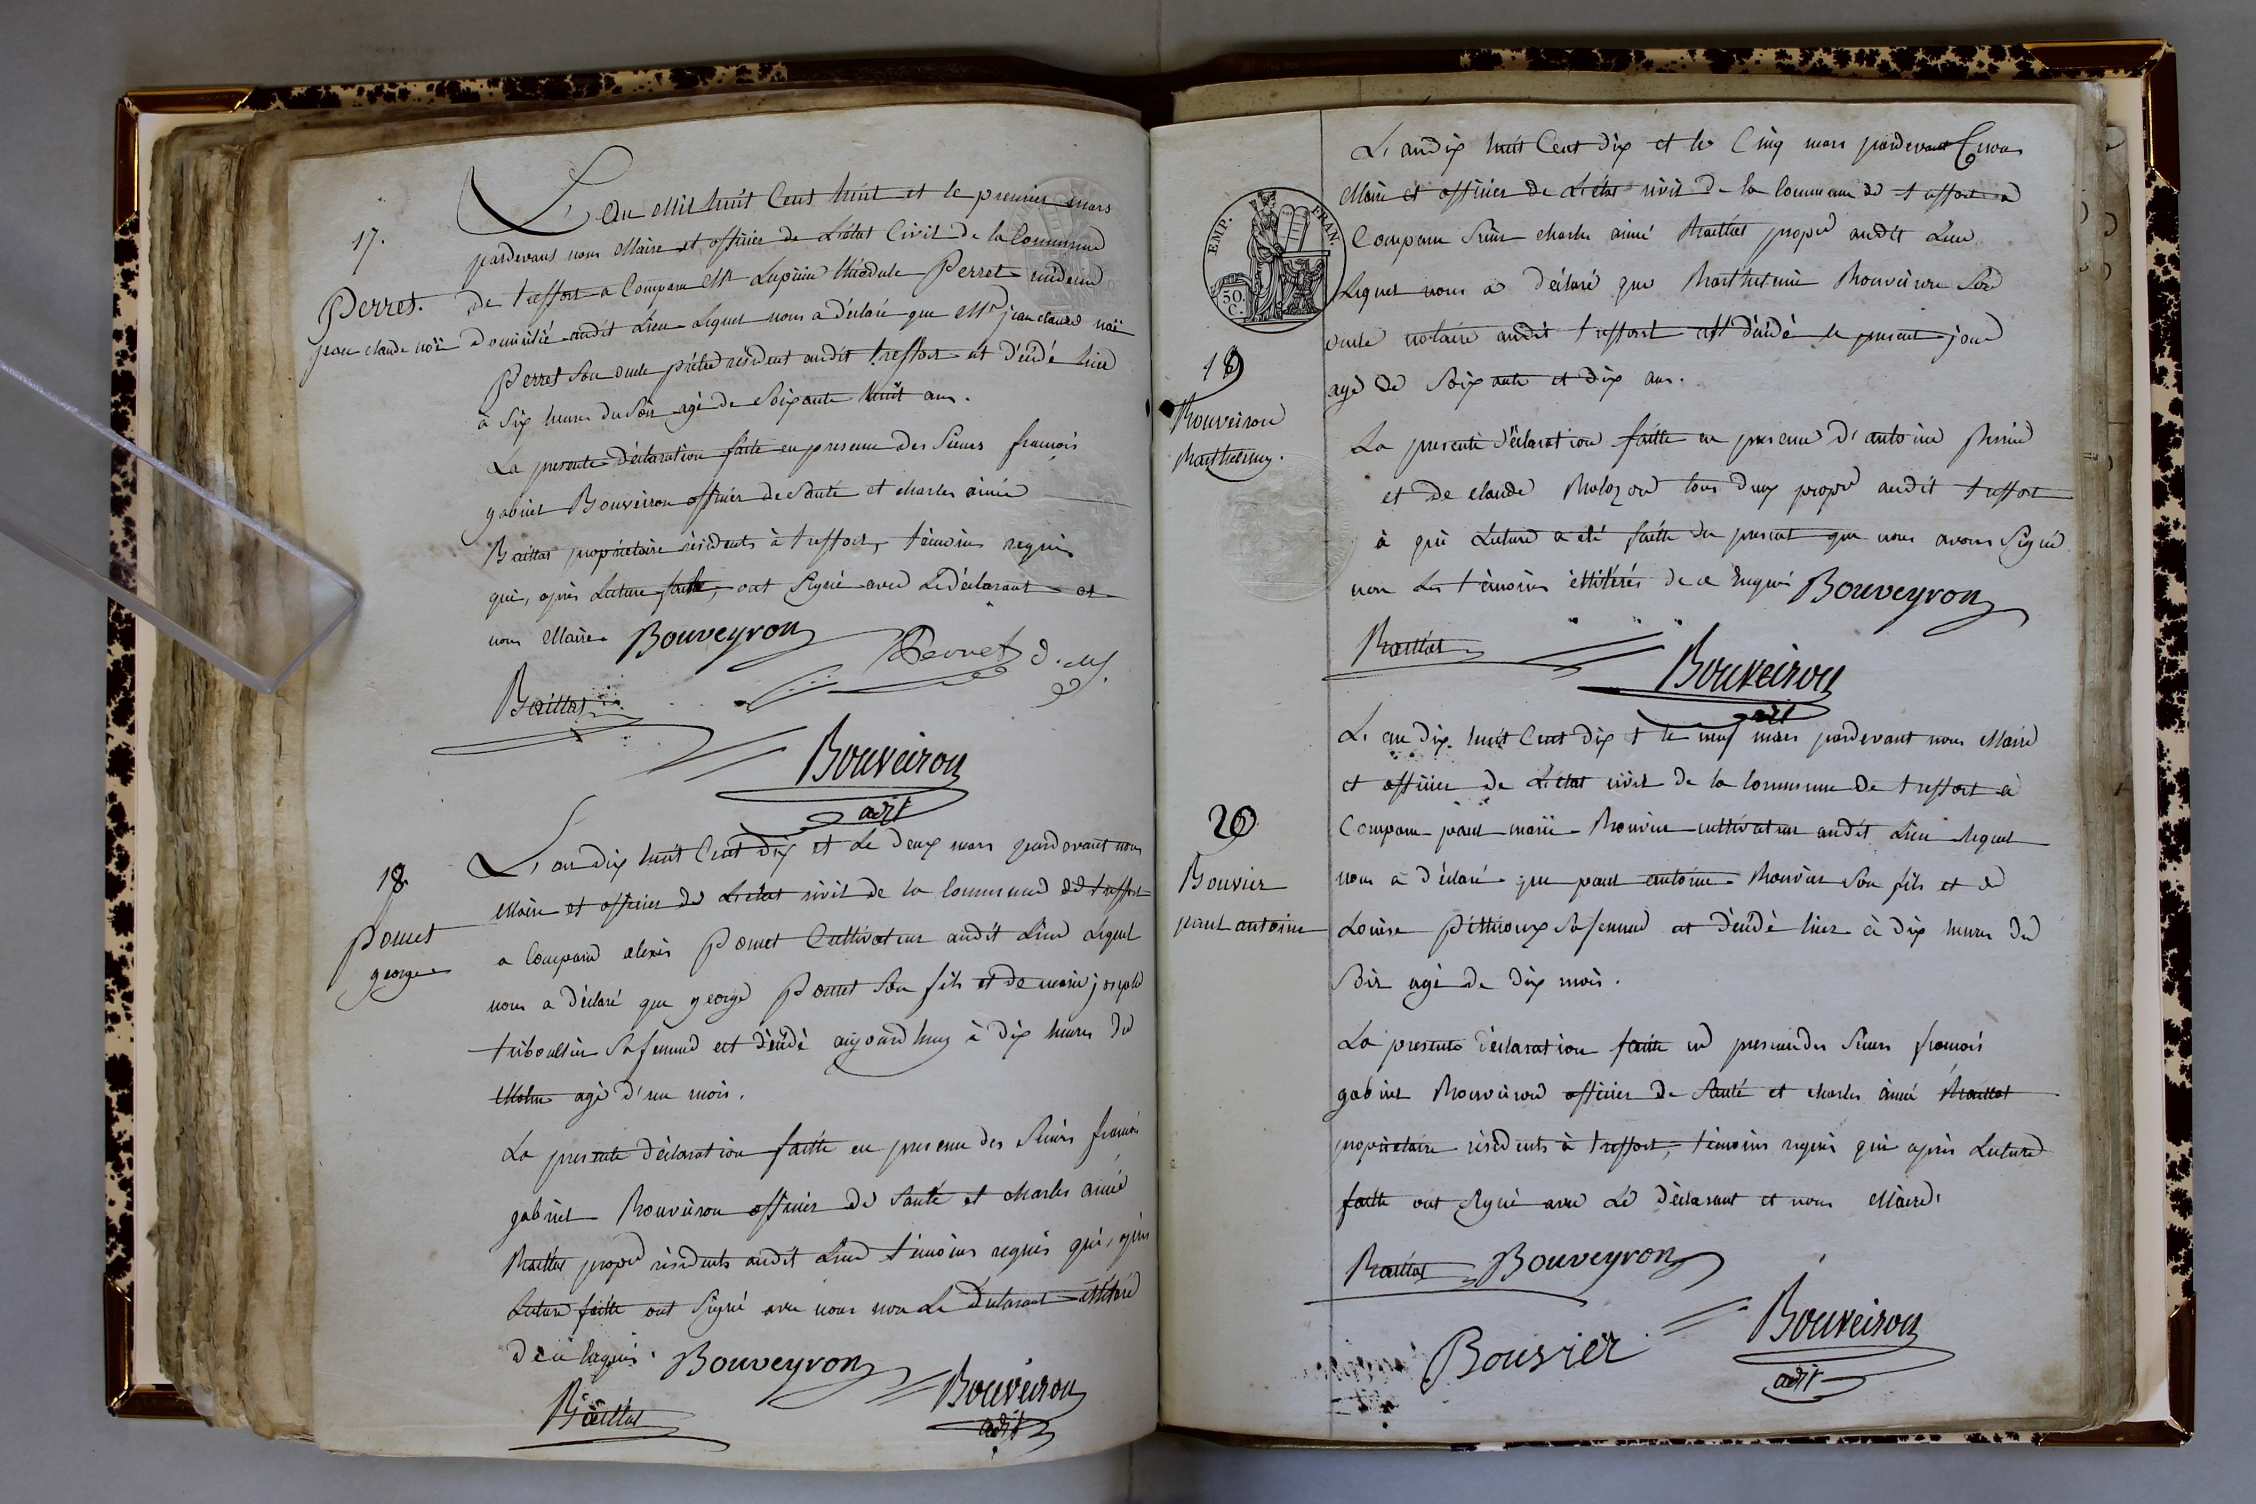 17.
Perret.
jean claude noël
L'an mil huit Cent huit et le premier mars
pardevant nous Maire et officier de L'état Civil de la Commune
de treffort a Comparu Mr Lupicin théodule Perret médecin
domicilié audit Lieu Lequel nous a déclaré que Mr jean claude noël
Perret Son oncle prêtre résident audit treffort est décédé hier
à Six heures du Soir agé de Soixante huit ans.
La presente déclaration faitte en presence des Sieurs françois
gabriel Bouveiron officier de Santé et charles aimé
Baillat propriétaire résidents à treffort, témoins requis
qui, après Lecture faitte, ont Signé avec Le déclarant et
nous Maire. Bouveyron
Perret d. M.
Baillat
Bouveiron
adjt
18
pomet
george
L'an dix huit Cent dix et Le deux mars pardevant nous
Maire et officier de L'état civil de la Commune de treffort
a Comparu alexis pomet Cultivateur audit Lieu Lequel
nous a déclaré que george pomet Son fils et de marie josephe
triboullin Sa femme est décédé aujourd huy à dix heures du
Matin agé d'un mois.
La presente déclaration faitte en presence des Sieurs françois
gabriel Bouveiron officier de Santé et charles aimé
Baillat propre résidents audit Lieu témoins requis qui, après
Lecture faitte ont Signé avec nous non Le Déclarant illitéré
de ce Enquis. Bouveyron
Baillat
Bouveiron
adjt
EMP. FRAN.
50.
C.
19
Bouveiron
Barthelemy.
L'an dix huit Cent dix et le Cinq mars pardevant nous
Maire et officier de L'état civil de la Commune de treffort a
Comparu Sieur charles aimé Baillat propre audit Lieu
Lequel nous a déclaré que Barthelemie Bouveiron Son
oncle notaire audit treffort est décédé le present jour
agé de Soixante et dix ans.
La presente déclaration faitte en presence d'antoine
et de claude tous deux propre audit treffort
à qui Lecture a été faitte du present que nous avons Signé
non Les témoins illitérés de ce Enquis Bouveyron
Baillat
Bouveiron
adjt
20
Bouvier
paul antoine
L'an dix huit Cent dix et le neuf mars pardevant nous Maire
et officier de L'état civil de la Commune de treffort a
Comparu paul marie Bouvier cultivateur audit Lieu Lequel
nous a déclaré que paul antoine Bouvier Son fils et de
Louise Péttioux Sa femme est décédé hier à dix heures du
Soir agé de dix mois.
La presente déclaration faitte en presence des Sieurs françois
gabriel Bouveiron officier de Santé et charles aimé Baillat
propriétaire résidents à treffort, témoins requis qui après Lecture
faitte ont Signé avec Le déclarant et nous Maire.
Baillat Bouveyron
Bouvier
Bouveiron
adjt